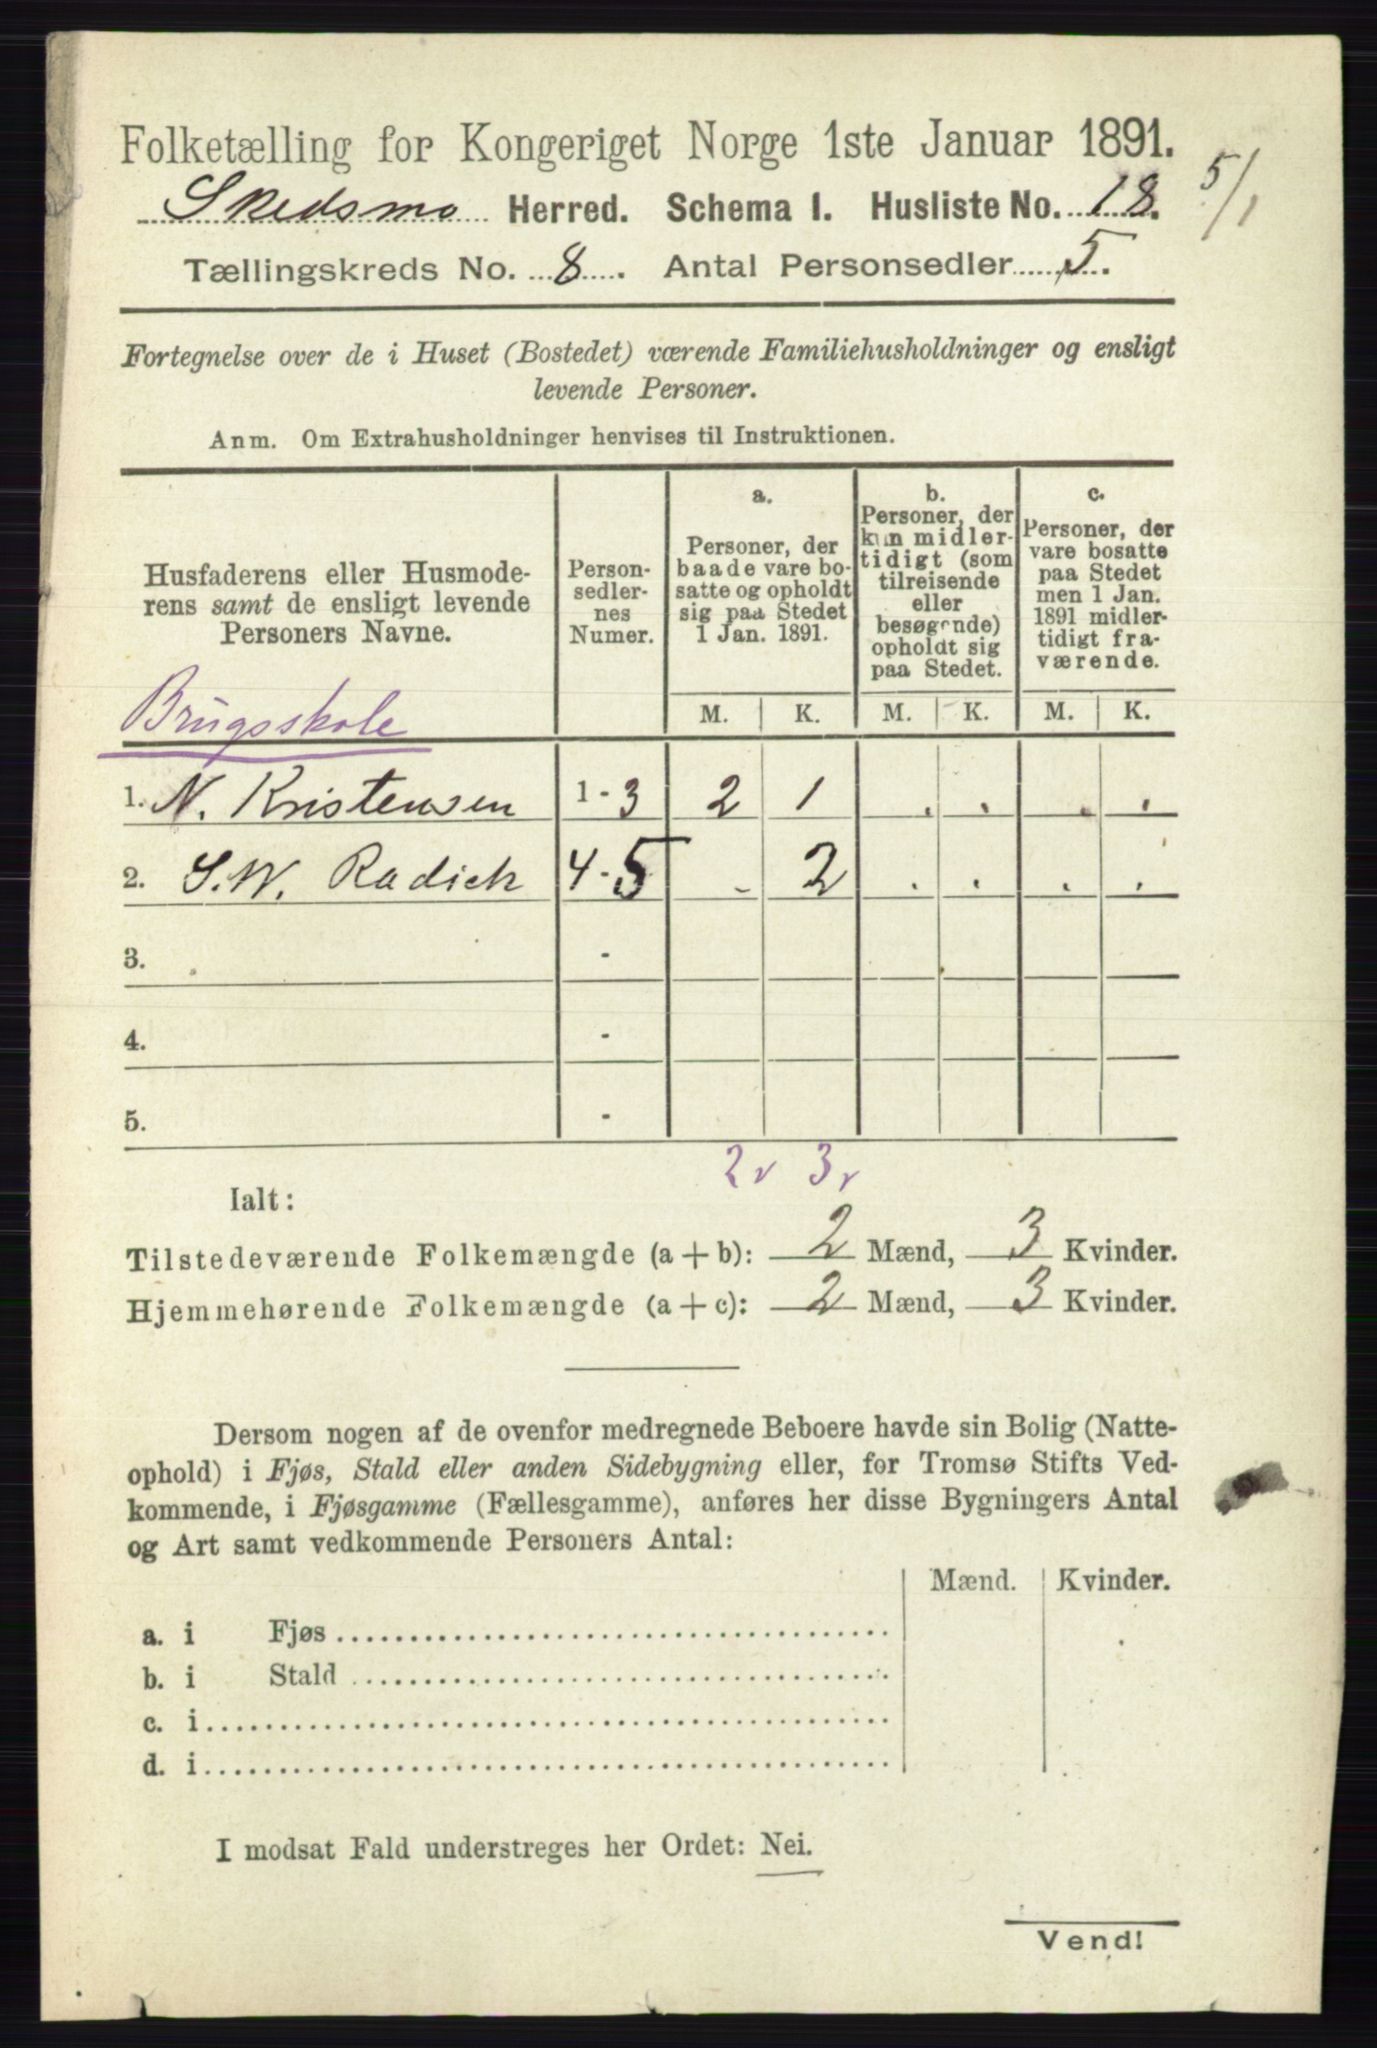 Folketælling for Kongeriget Norge 1ste Januar 1891.
5/1
Skedsmo Herred. Schema I. Husliste No. 18.
Tællingskreds No. 8. Antal Personsedler 5.
Fortegnelse over de i Huset (Bostedet) værende Familiehusholdninger og ensligt
levende Personer.
Anm. Om Extrahusholdninger henvises til Instruktionen.
Husfaderens eller Husmode-
rens samt de ensligt levende
Personers Navne.
Person-
sedler-
nes
Numer.
a.
Personer, der
baade vare bo-
satte og opholdt
sig paa Stedet
1 Jan. 1891.
b.
Personer, der
kun midler-
tidigt (som
tilreisende
eller
besøgende)
opholdt sig
paa Stedet.
c.
Personer, der
vare bosatte
paa Stedet
men 1 Jan.
1891 midler-
tidigt fra-
værende.
M. K. M. K. M. K.
Brugsskole
1. N. Kristensen 1-3 2 1 . . . .
2. S. W. Radich 4-5 - 2 . . . .
3. -
4. -
5. -
2 v 3 v
Ialt:
Tilstedeværende Folkemængde (a + b): 2 Mænd, 3 Kvinder.
Hjemmehørende Folkemængde (a + c): 2 Mænd, 3 Kvinder.
Dersom nogen af de ovenfor medregnede Beboere havde sin Bolig (Natte-
ophold) i Fjøs, Stald eller anden Sidebygning eller, for Tromsø Stifts Ved-
kommende, i Fjøsgamme (Fællesgamme), anføres her disse Bygningers Antal
og Art samt vedkommende Personers Antal:
Mænd. Kvinder.
a. i Fjøs
b. i Stald
c. i
d. i
I modsat Fald understreges her Ordet: Nei.
Vend!